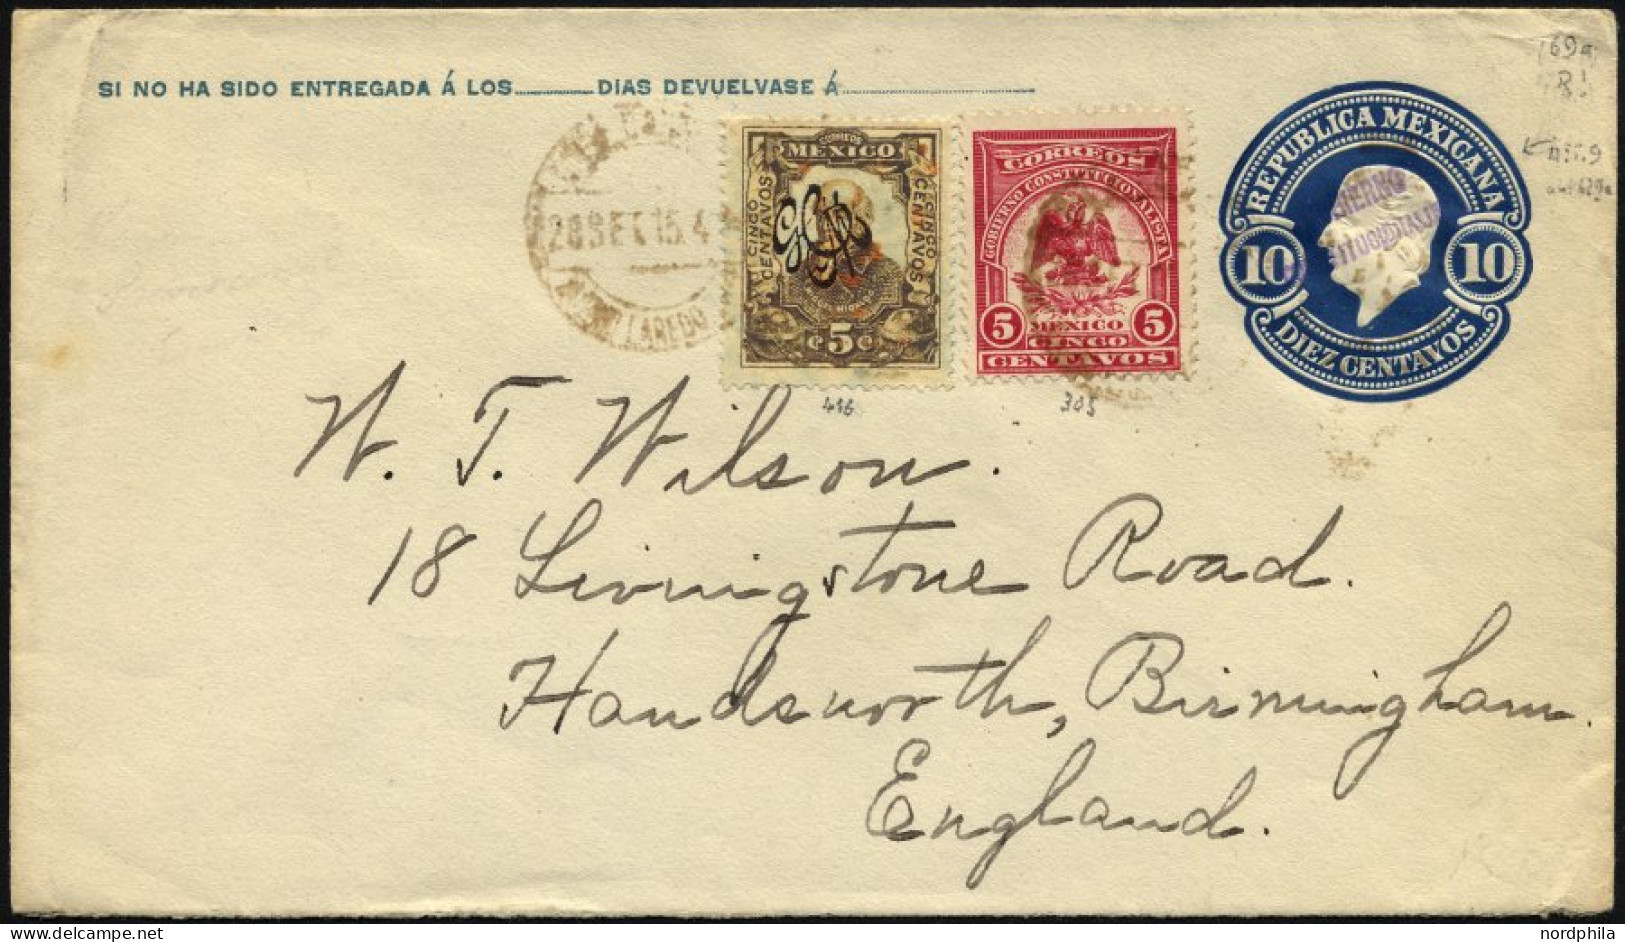 SI NO HA SIDO ENTREGADA Á LOS DIAS DEVUELVASE Á
28 SET 15. 4
LAREDO
CORREOS
MEXICO
CINCO CENTAVOS
CINCO CENTAVOS
¢5¢
416
CORREOS
GOBIERNO CONSTITUCIONALISTA
5 MEXICO 5
CINCO
CENTAVOS
305
REPUBLICA MEXICANA
10 10
DIEZ CENTAVOS
W. T. Wilson.
18 Livingstone Road.
Handsworth, Birmingham.
England.
nordphila